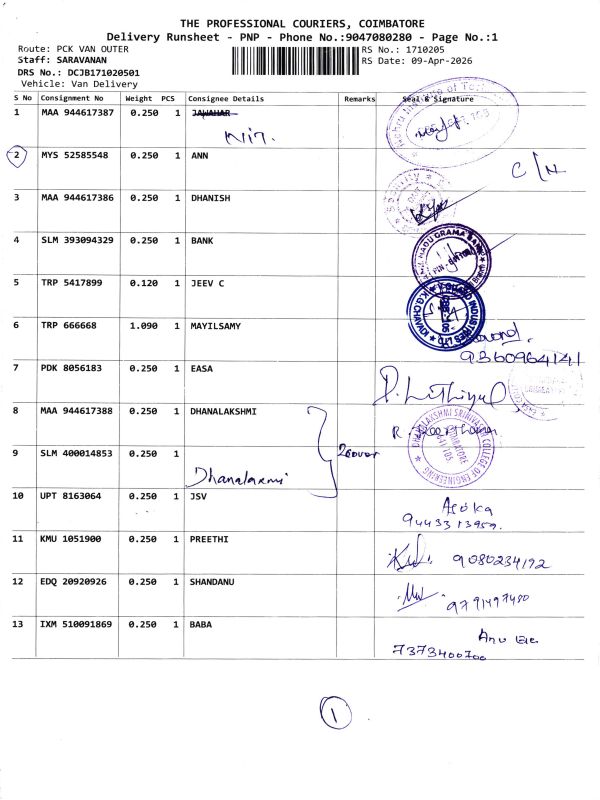 THE PROFESSIONAL COURIERS, COIMBATORE
Delivery Runsheet - PNP - Phone No.:9047080280 - Page No.:1
Route: PCK VAN OUTER
RS No.: 1710205
Staff: SARAVANAN
RS Date: 09-Apr-2026
DRS No.: DCJB171020501
Vehicle: Van Delivery
S No Consignment No Weight PCS Consignee Details Remarks Seal & Signature
1 MAA 944617387 0.250 1 JAWAHAR
2 MYS 52585548 0.250 1 ANN
C/N
3 MAA 944617386 0.250 1 DHANISH
4 SLM 393094329 0.250 1 BANK
5 TRP 5417899 0.120 1 JEEV C
6 TRP 666668 1.090 1 MAYILSAMY
9360964141
7 PDK 8056183 0.250 1 EASA
8 MAA 944617388 0.250 1 DHANALAKSHMI
DHANALAKSHMI SRINIVASAN COLLEGE OF ENGINEERING
9 SLM 400014853 0.250 1
Dhanalaxmi
10 UPT 8163064 0.250 1 JSV
Asoka
9443313959
11 KMU 1051900 0.250 1 PREETHI
9080234192
12 EDQ 20920926 0.250 1 SHANDANU
9791497480
13 IXM 510091869 0.250 1 BABA
7373400700
1